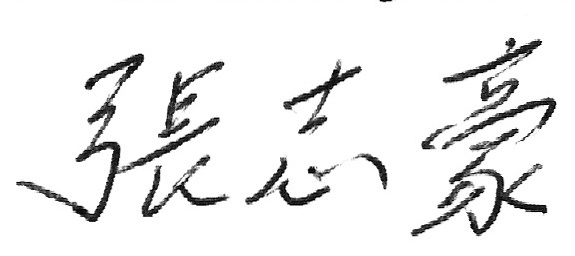 張志豪